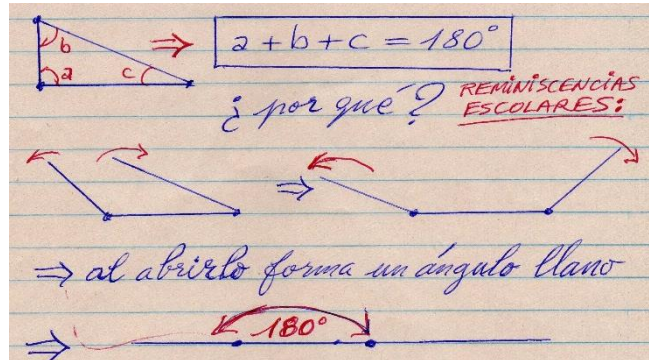 b
a
c
⇒ a + b + c = 180°
¿por qué?
REMINISCENCIAS
ESCOLARES:
⇒
⇒ al abrirlo forma un ángulo llano
⇒ 180°